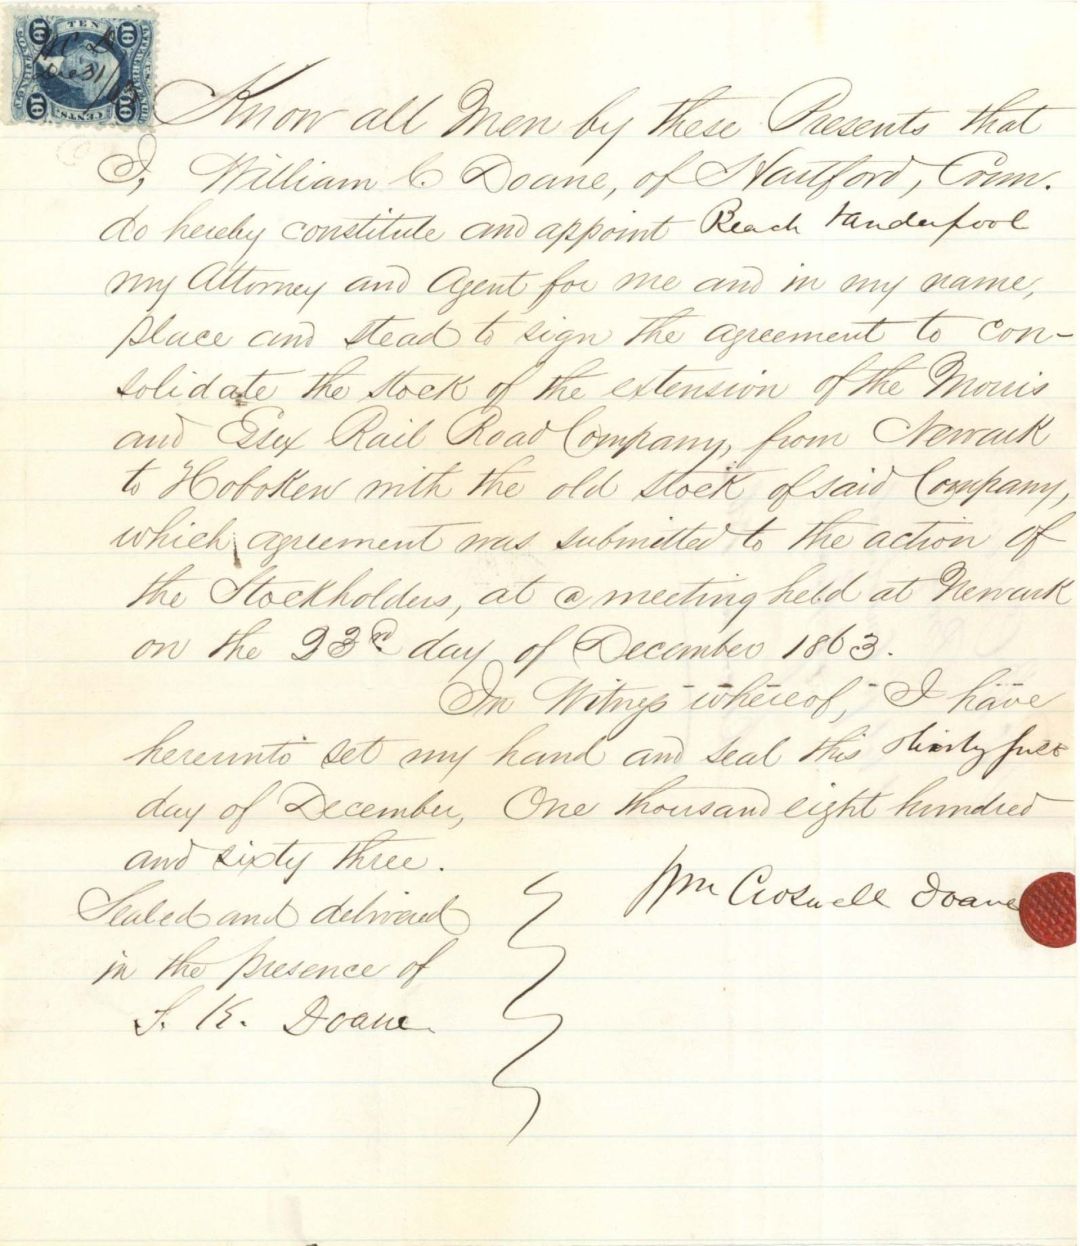 TEN
10 10
W C D
Dec 31
/63
10 10
CENTS
Know all Men by these Presents that
I, William C. Doane, of Hartford, Conn.
do hereby constitute and appoint Beach Vanderpool
my Attorney and Agent for me and in my name,
place and stead to sign the agreement to con-
solidate the stock of the extension of the Morris
and Essex Rail Road Company, from Newark
to Hoboken with the old stock of said Company,
which agreement was submitted to the action of
the Stockholders, at a meeting held at Newark
on the 23rd day of December 1863.
In Witness whereof, I have
hereunto set my hand and seal this thirty first
day of December, One thousand eight hundred
and sixty three.
Sealed and delivered
in the presence of
S. K. Doane
Wm Croswell Doane